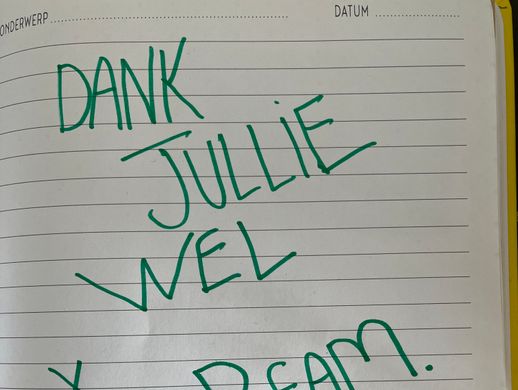 ONDERWERP DATUM
DANK
JULLIE
WEL